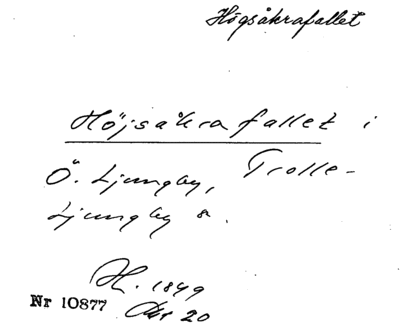 Högsåkrafallet
Höjsåkrafallet i
Ö. Ljungby, Trolle-
Ljungby s.
H. 1849
Nr 10877
20